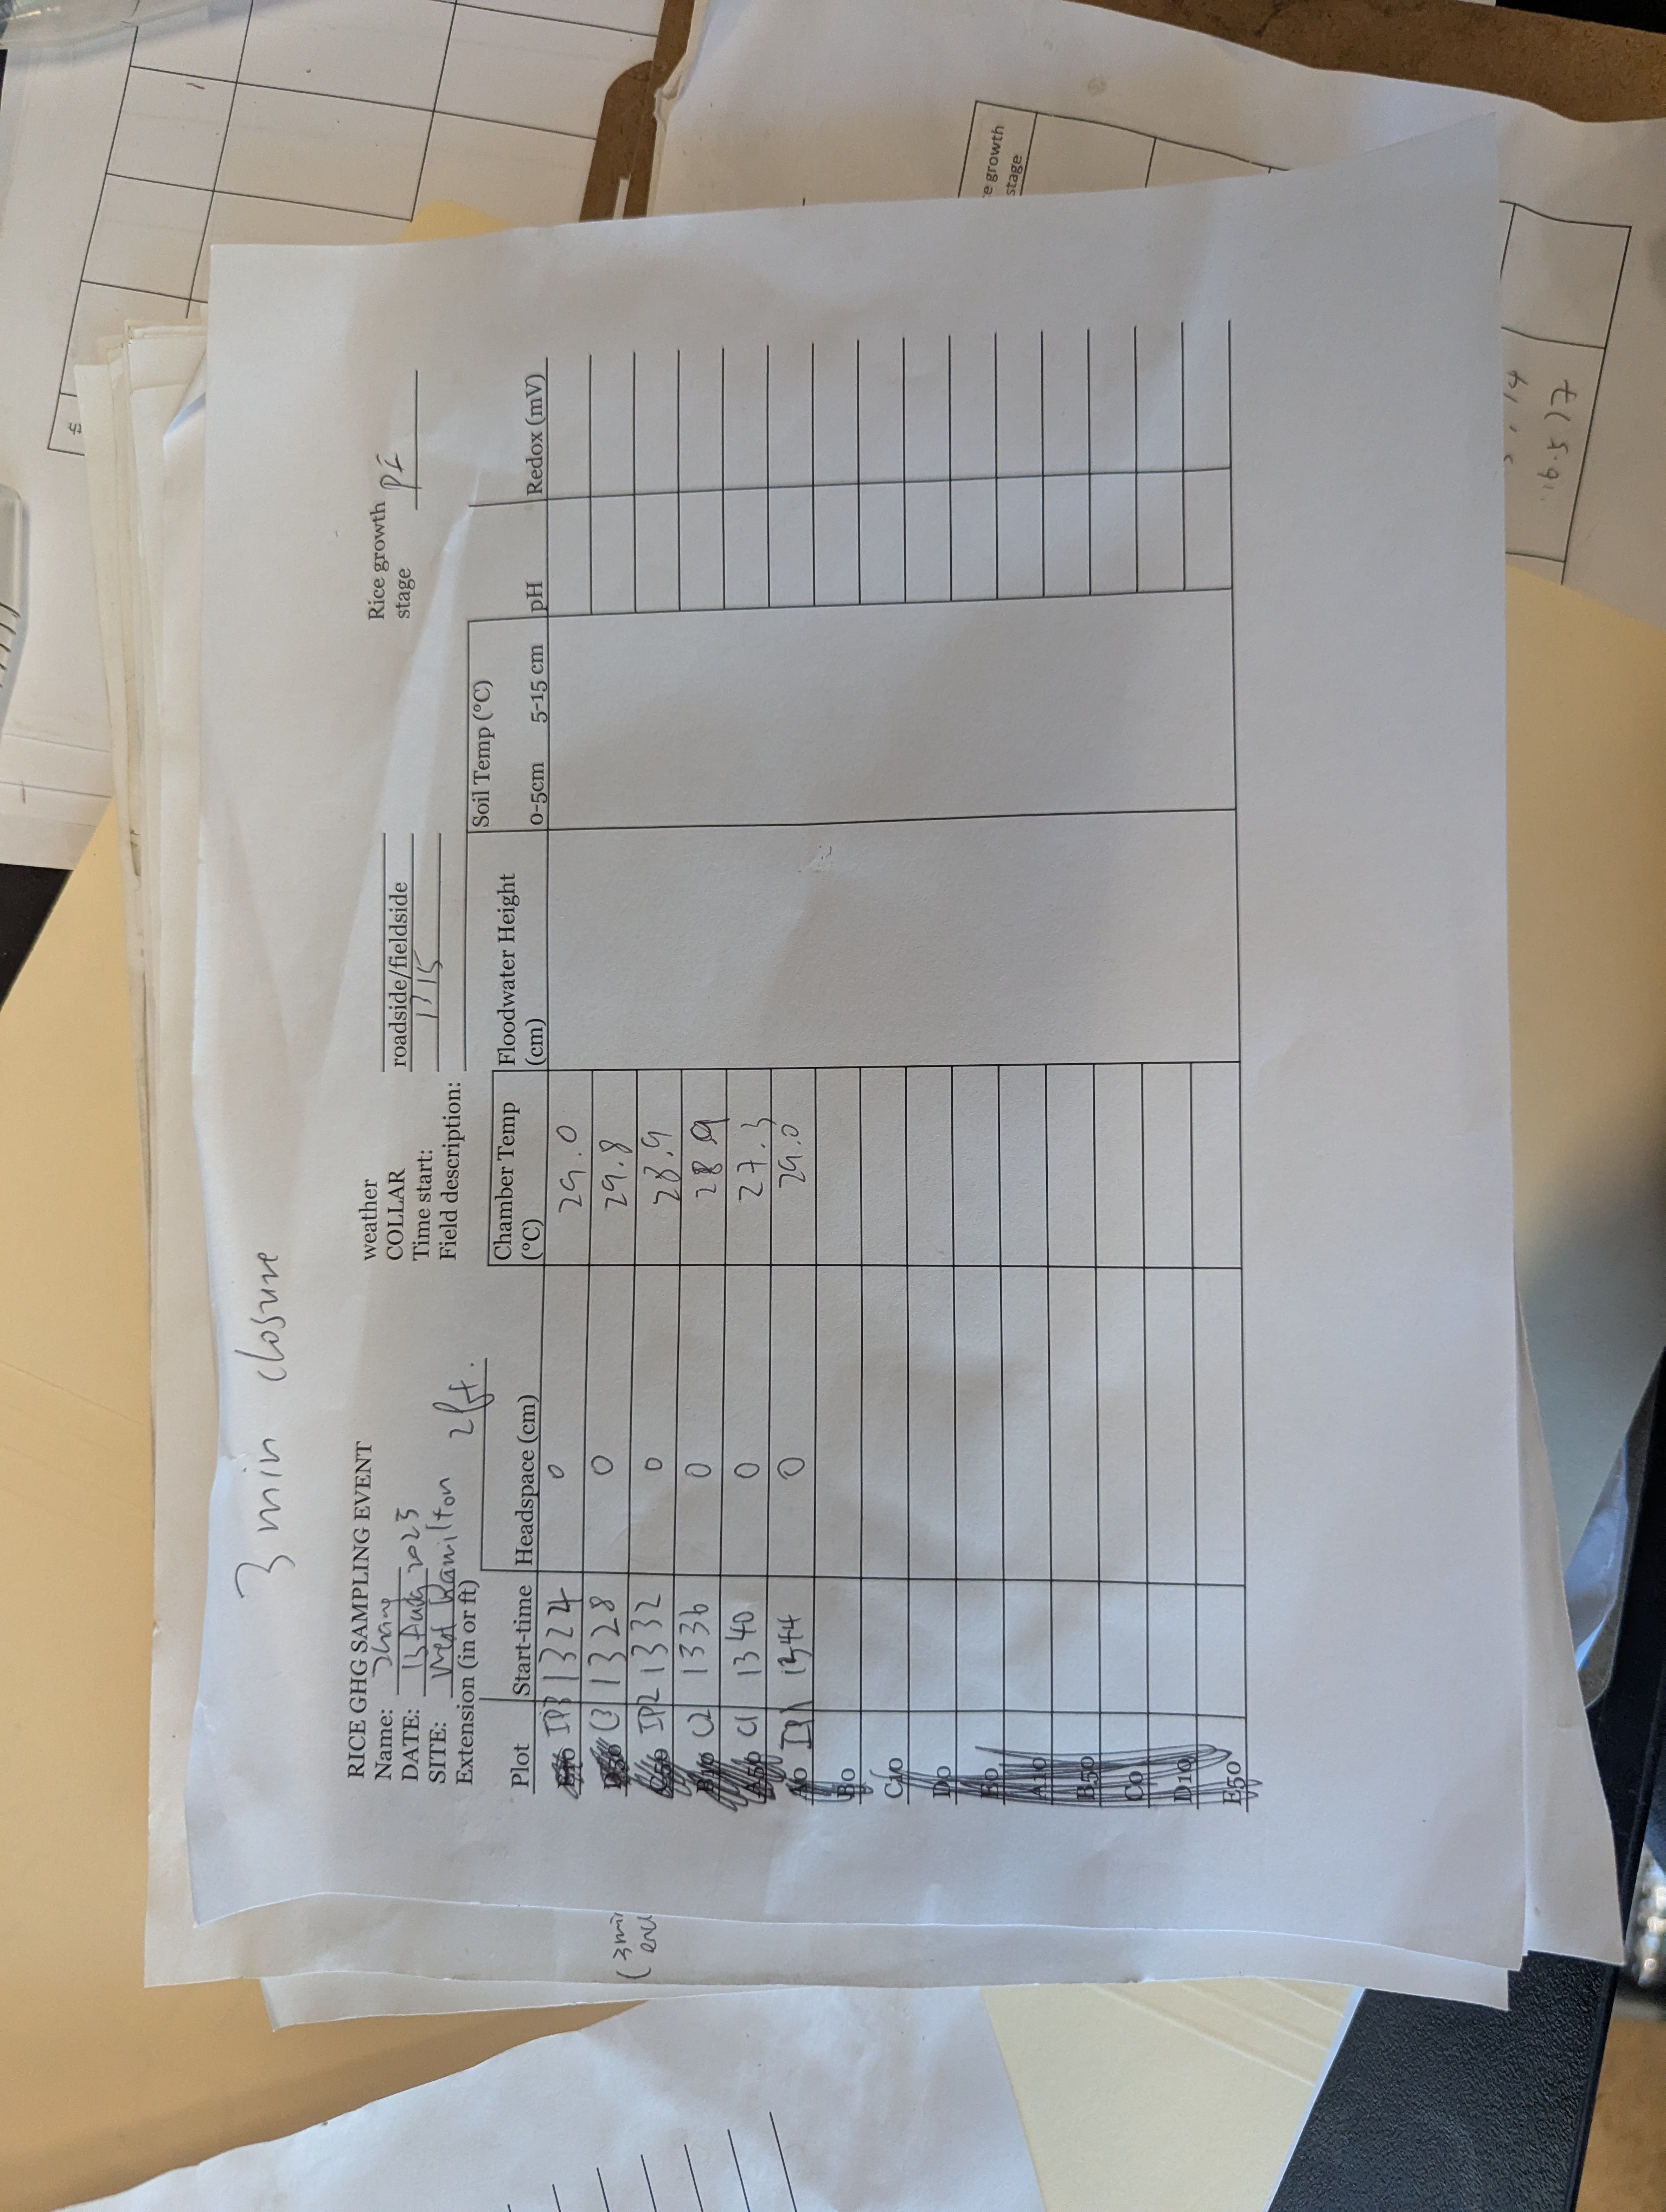 3 min closure
RICE GHG SAMPLING EVENT
Name: Zhang
DATE: 13 Aug 2023
SITE: West Hamilton
Extension (in or ft) 2 ft.
weather
COLLAR roadside/fieldside
Time start: 1315
Field description:
Rice growth
stage PI
Soil Temp (°C)
Plot Start-time Headspace (cm) Chamber Temp (°C) Floodwater Height (cm) 0-5cm 5-15 cm pH Redox (mV)
IP3 1324 0 29.0
D50 C3 1328 0 29.8
C50 IP2 1332 0 28.9
B10 C2 1336 0 28.9
A50 C1 1340 0 27.3
A0 IP1 1344 0 29.0
B0
C10
D0
E0
A10
B50
C0
D10
E50
(3 min
e growth
stage